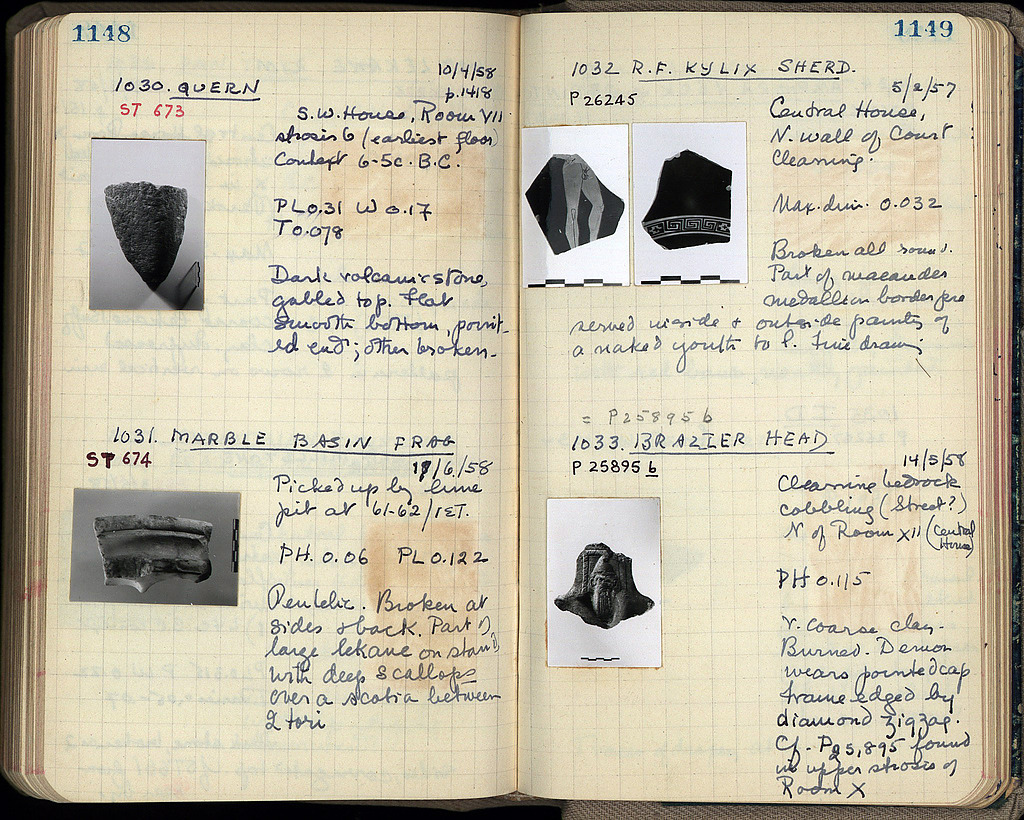 1148
1030. QUERN
10/4/58
p.1418
ST 673
S.W. House, Room VII
strosis 6 (earliest floor)
Context 6-5c. B.C.
PL 0.31 W 0.17
T 0.078
Dark volcanic stone,
gabled top. Flat
smooth bottom, point-
ed end; other broken.
1031. MARBLE BASIN FRAG
ST 674
17/6/58
Picked up by lime
pit at 61-62/ΙΣΤ.
PH. 0.06 PL 0.122
Pentelic. Broken at
sides & back. Part of
large lekane on stand
with deep scallops
over a scotia between
2 tori
1149
1032 R.F. KYLIX SHERD.
P 26245
5/2/57
Central House,
N. wall of Court
Cleaning.
Max. dim. 0.032
Broken all round.
Part of maeander
medallion border pre
served inside & outside parts of
a naked youth to l. Fine drawing
= P25895 b
1033. BRAZIER HEAD
P 25895 b
14/5/58
Clearing bedrock
cobbling (Street?)
N of Room XII (Central
House)
PH 0.115
V. coarse clay.
Burned. Demon
wears pointed cap
frame edged by
diamond zigzag.
Cf. P25,895 found
in upper strosis of
Room X